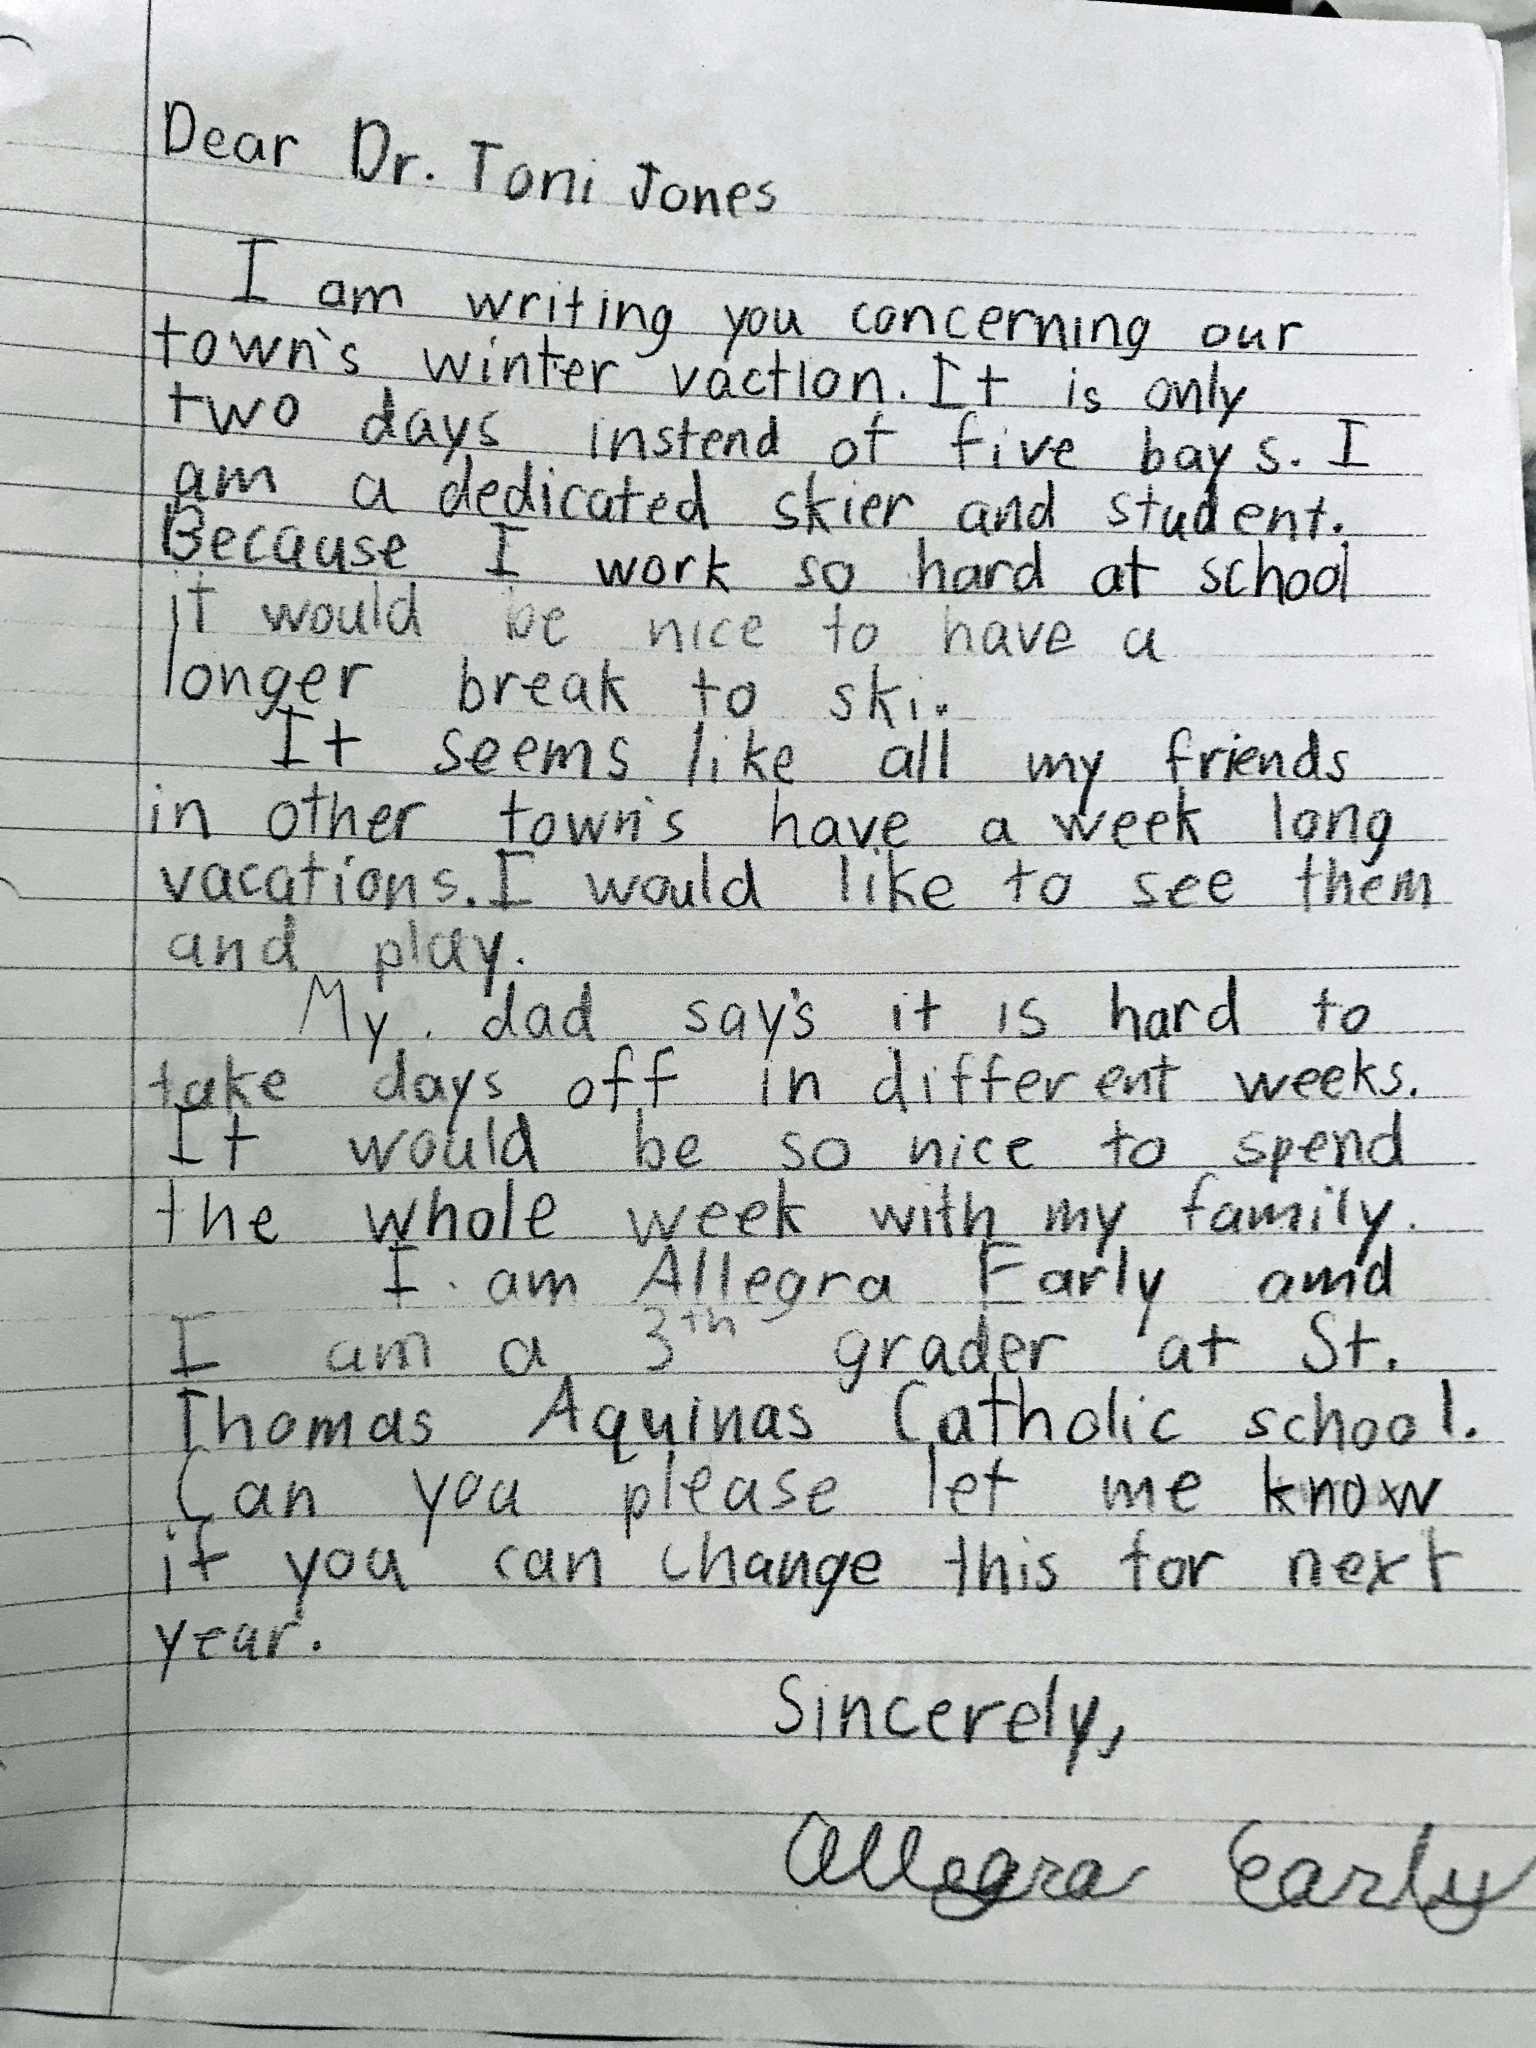 Dear Dr. Toni Jones
I am writing you concerning our
town's winter vaction. It is only
two days instend of five bays. I
am a dedicated skier and student.
Because I work so hard at school
it would be nice to have a
longer break to ski.
It seems like all my friends
in other town's have a week long
vacations. I would like to see them
and play.
My dad say's it is hard to
take days off in different weeks.
It would be so nice to spend
the whole week with my family.
I am Allegra Early amd
I am a 3th grader at St.
Thomas Aquinas Catholic school.
Can you please let me know
if you can change this for next
year.
Sincerely,
Allegra Early